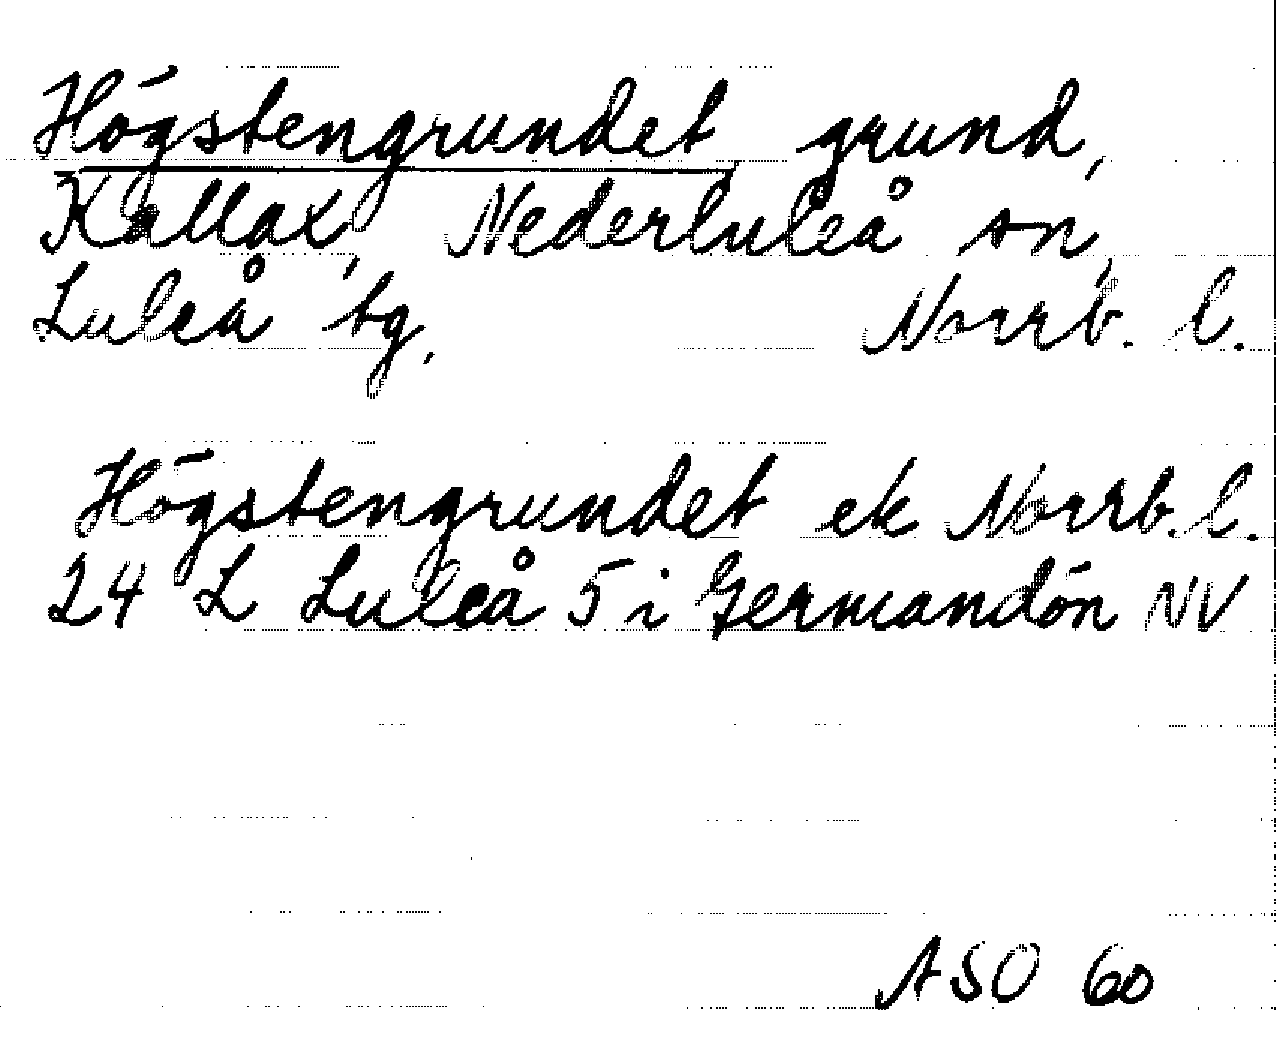 Högstengrundet grund,
Kallax, Nederluleå sn,
Luleå tg, Norrb. l.
Högstengrundet ek Norrb. l.
24 L Luleå 5 i Germandön NV
ASO 60